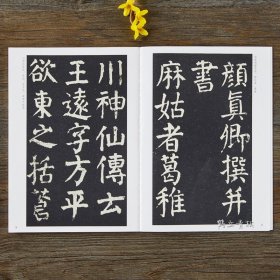 顏眞卿撰并
書
麻姑者葛稚
川神仙傳云
王遠字方平
欲東之括蒼